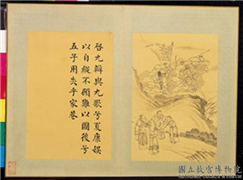 啓九辯與九歌兮夏康娛
以自縱不顧難以圖後兮
五子用失乎家巷
國立故宮博物院